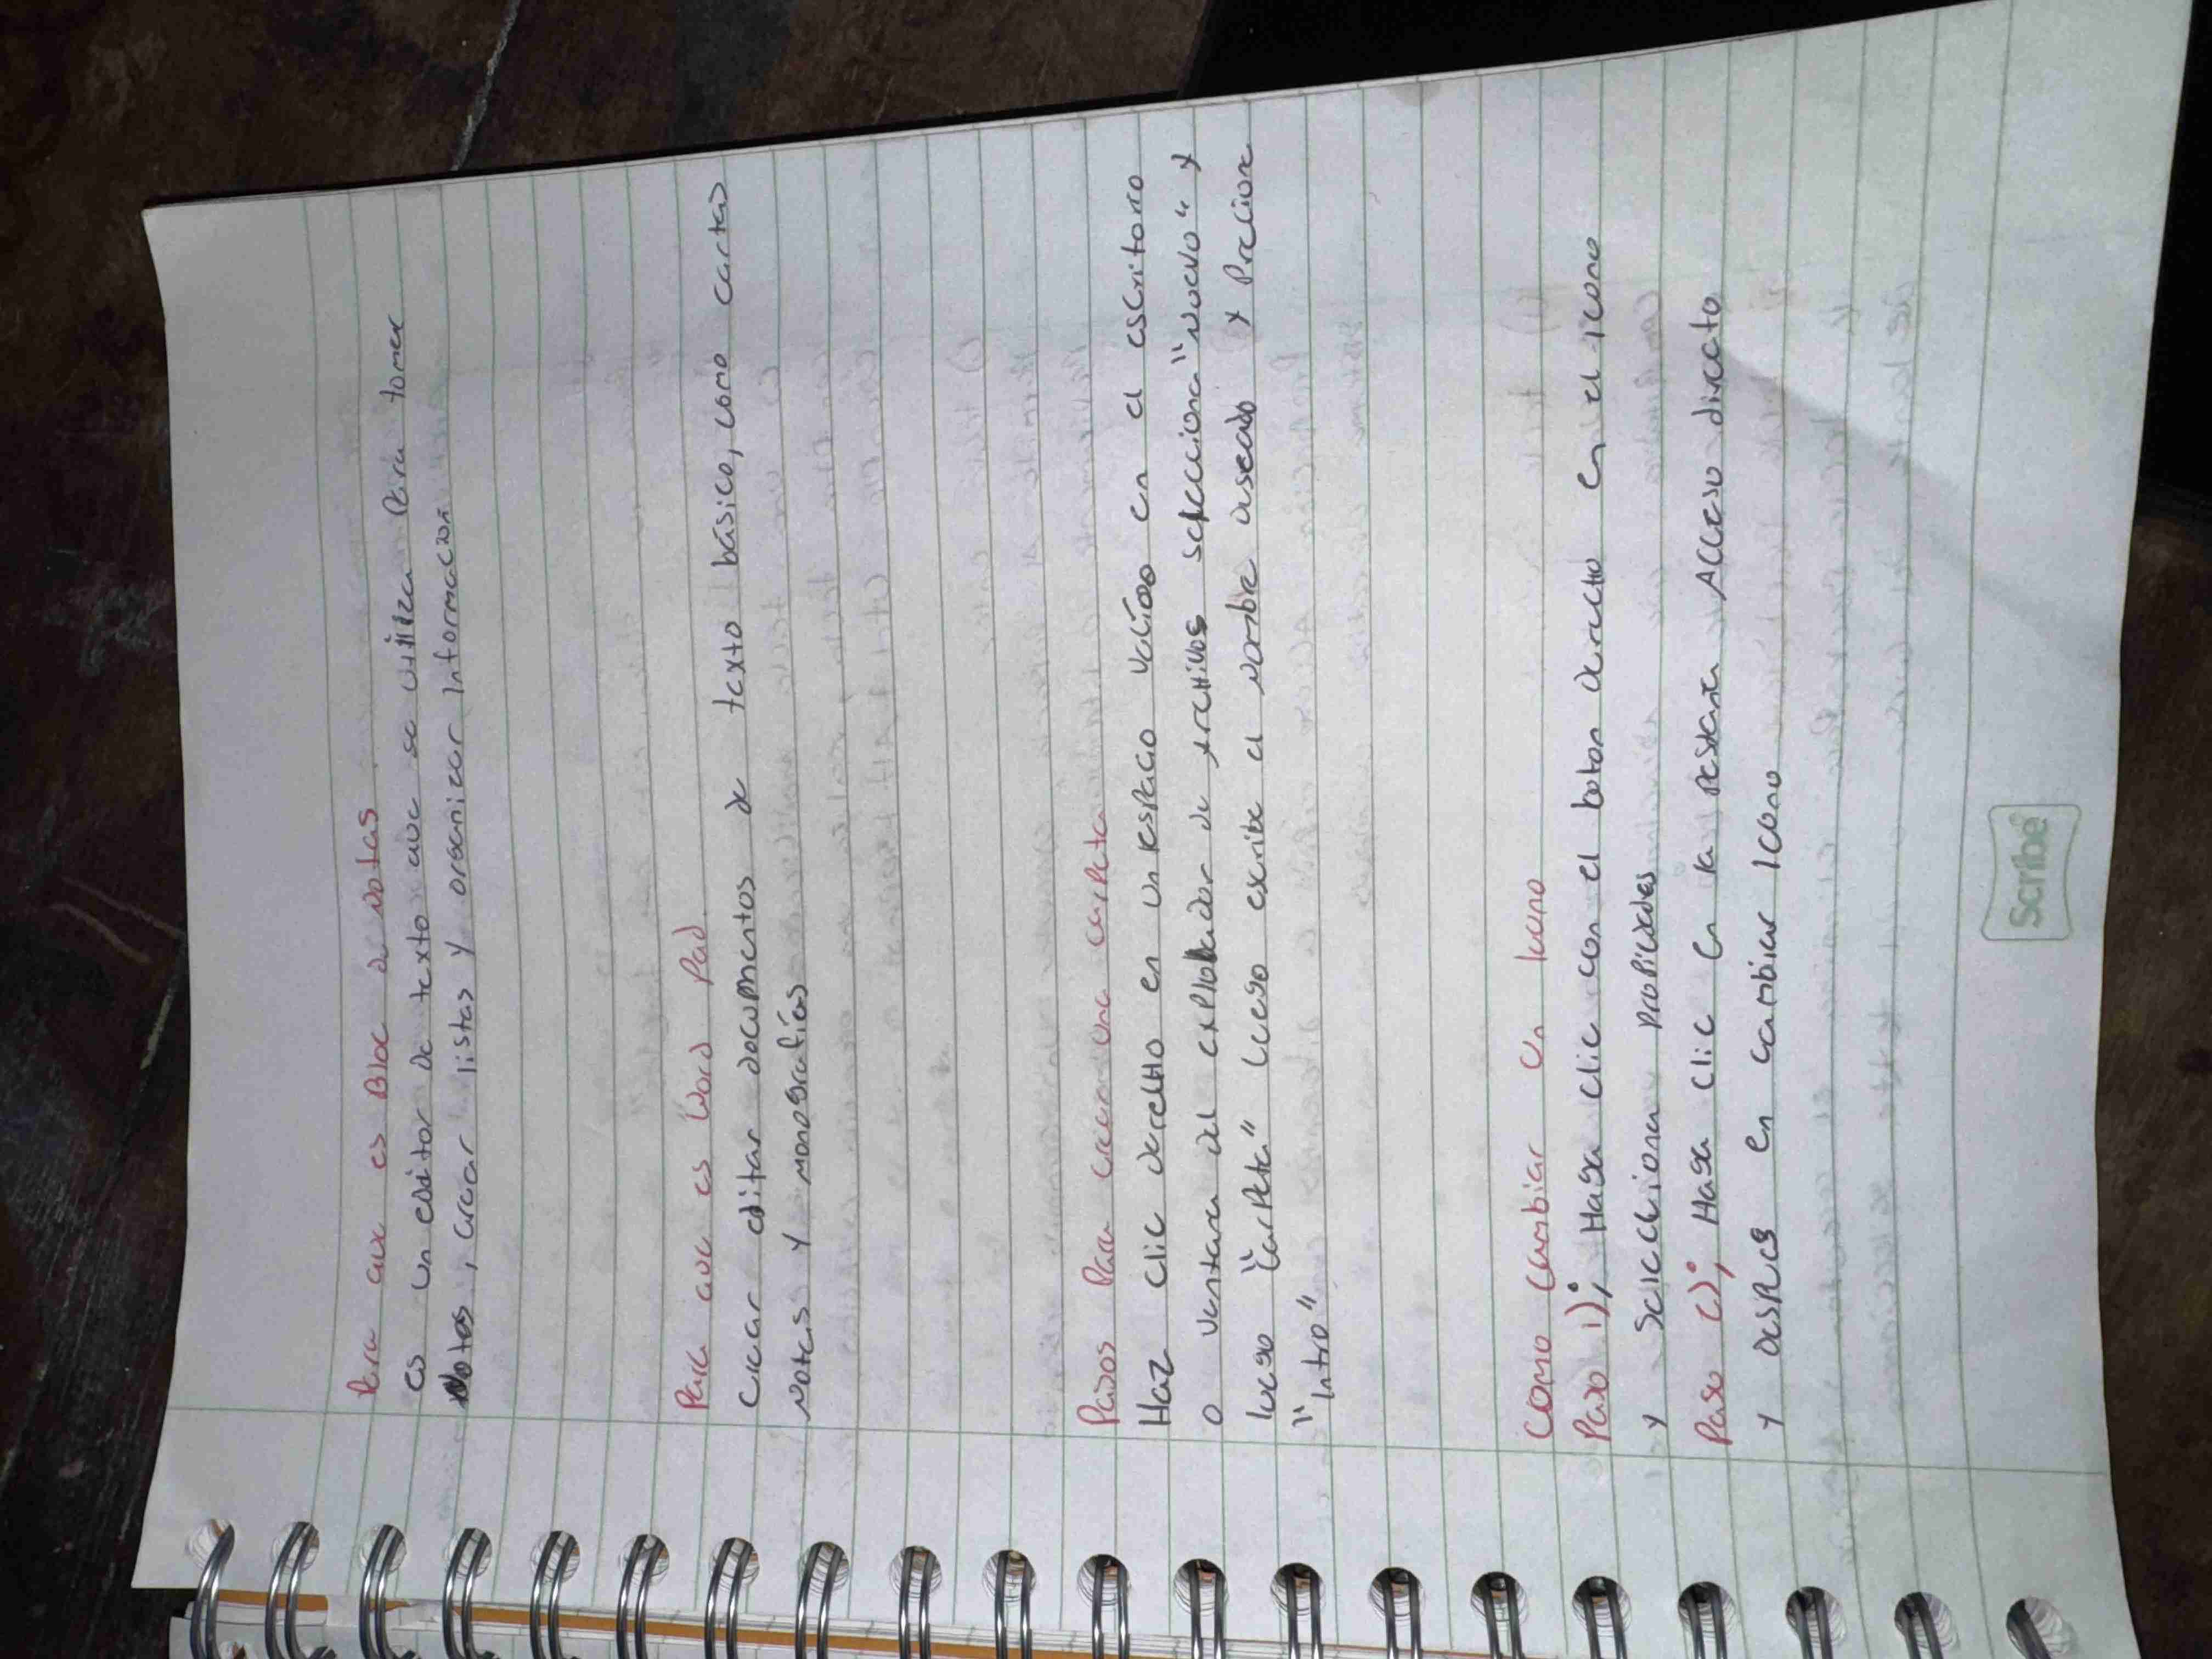 Para que es Bloc de Notas
es un editor de texto que se utiliza Para tomar
Notas, crear listas y organizar Informacion.
Para que es Word Pad
Crear editar documentos de texto básico, como cartas
Notas y monografías
Pasos Para crear una carpeta
Haz clic derecho en un espacio vacíoo en el escritorio
o ventana del explorador de archivos selecciona "Nuevo" y
luego "Carpeta" Luego escribe el Nombre deseado y Preciona
"Intro"
Como Cambiar un Icono
Paso 1); Haga clic con el boton derecho en el icono
y Selecciona propiedades
Paso 2); Haga clic en la pestaña Acceso directo
y despues en cambiar Icono
Scribe